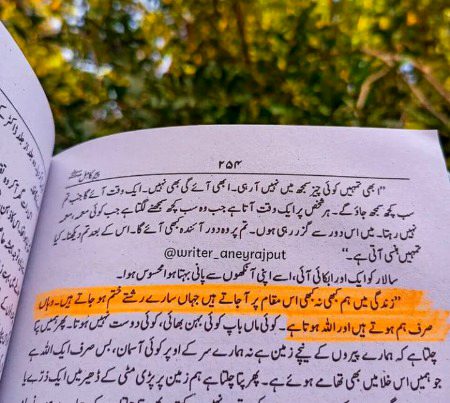 ۲۵۴
پیر کامل
"ابھی تمہیں کوئی چیز سمجھ میں نہیں آ رہی۔ ابھی آئے گی بھی نہیں۔ ایک وقت آئے گا جب تم
سب کچھ سمجھ جاؤ گے۔ ہر شخص پر ایک وقت آتا ہے جب وہ سب کچھ سمجھنے لگتا ہے جب کوئی معمہ، معمہ
نہیں رہتا۔ میں اس دور سے گزر رہی ہوں۔ تم پر وہ دور آئندہ کبھی آئے گا۔ اس کے بعد تم دیکھنا۔ کیا
تمہیں ہنسی آتی ہے۔"
@writer_aneyrajput
سالار کو ایک اور ابکائی آئی، اسے اپنی آنکھوں سے پانی بہتا ہوا محسوس ہوا۔
"زندگی میں ہم کبھی نہ کبھی اس مقام پر آ جاتے ہیں جہاں سارے رشتے ختم ہو جاتے ہیں۔ وہاں
صرف ہم ہوتے ہیں اور اللہ ہوتا ہے۔ کوئی ماں باپ کوئی بہن بھائی، کوئی دوست نہیں ہوتا۔ پھر ہمیں پتا
چلتا ہے کہ ہمارے پیروں کے نیچے زمین ہے نہ ہمارے سر کے اوپر کوئی آسمان، بس صرف ایک اللہ ہے
جو ہمیں اس خلا میں بھی تھامے ہوئے ہے۔ پھر پتا چلتا ہے ہم زمین پر پڑی مٹی کے ڈھیر میں ایک ذرے یا